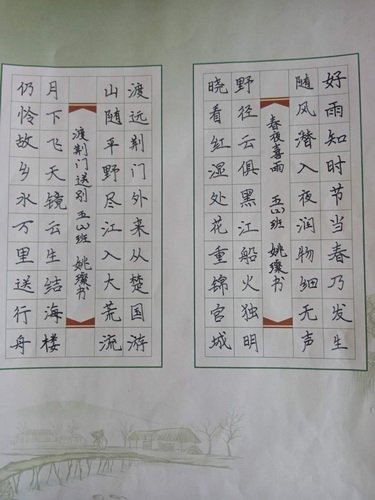 好雨知时节当春乃发生
随风潜入夜润物细无声
春夜喜雨 五(1)班 姚璨书
野径云俱黑江船火独明
晓看红湿处花重锦官城
渡远荆门外来从楚国游
山随平野尽江入大荒流
渡荆门送别 五(1)班 姚璨书
月下飞天镜云生结海楼
仍怜故乡水万里送行舟